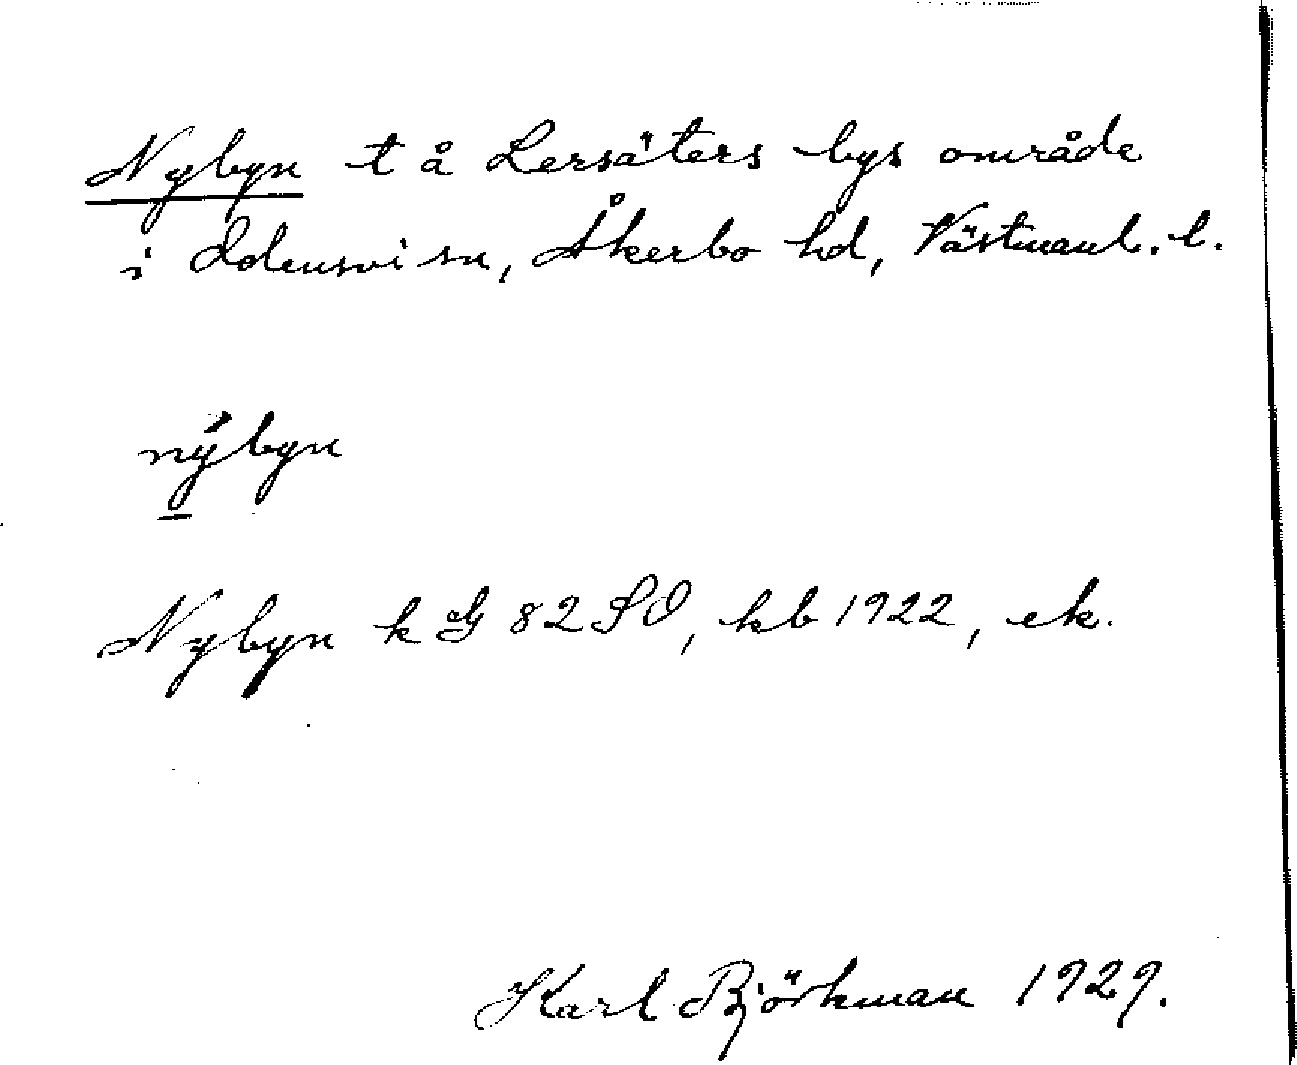 Nybyn t å Lersäters bys område
i Odensvi sn, Åkerbo hd, Västmanl. l.
nýbyn
Nybyn k G 82 SO, kb 1922, ek.
Karl Björkman 1929.